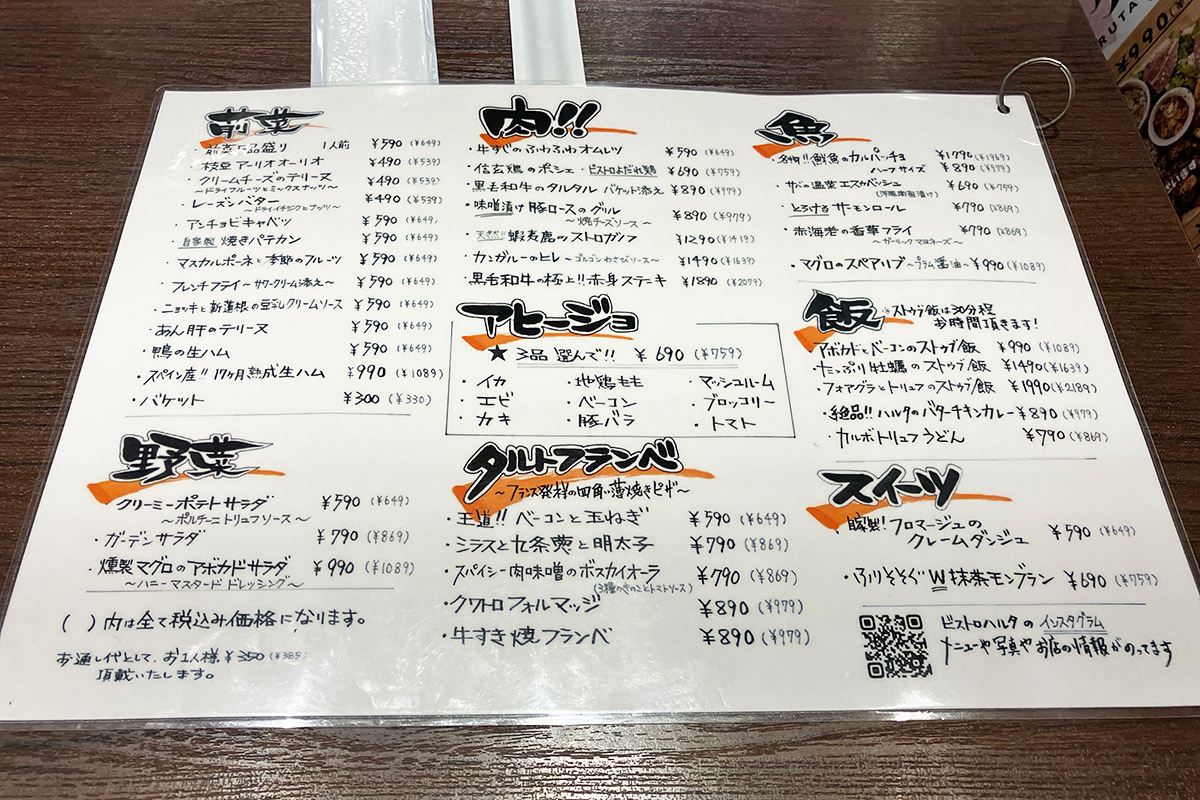 前菜
・前菜5品盛り 1人前 ¥590(¥649)
・枝豆アーリオオーリオ ¥490(¥539)
・クリームチーズのテリーヌ ¥490(¥539)
〜ドライフルーツとミックスナッツ〜
・レーズンバター ¥490(¥539)
〜ドライイチジクとナッツ〜
・アンチョビキャベツ ¥590(¥649)
・自家製 焼きパテカン ¥590(¥649)
・マスカルポーネと季節のフルーツ ¥590(¥649)
・フレンチフライ〜サワークリーム添え〜 ¥590(¥649)
・ニョッキと新蓮根の豆乳クリームソース ¥590(¥649)
・あん肝のテリーヌ ¥590(¥649)
・鴨の生ハム ¥590(¥649)
・スペイン産!! 17ヶ月熟成生ハム ¥990(¥1089)
・バケット ¥300(¥330)
野菜
・クリーミーポテトサラダ ¥590(¥649)
〜ポルチーニトリュフソース〜
・ガーデンサラダ ¥790(¥869)
・燻製マグロのアボカドサラダ ¥990(¥1089)
〜ハニーマスタードドレッシング〜
( )内は全て税込み価格になります。
お通し代として、お1人様¥350(¥385)
頂戴いたします。
肉!!
・牛すじのふわふわオムレツ ¥590(¥649)
・信玄鶏のポシェ・ビストロよだれ鶏 ¥690(¥759)
・黒毛和牛のタルタル バケット添え ¥890(¥979)
・味噌漬け豚ロースのグリル ¥890(¥979)
〜焼チーズソース〜
・天然!! 蝦夷鹿のストロガノフ ¥1290(¥1419)
・カンガルーのヒレ〜ゴルゴンわさびソース〜 ¥1490(¥1639)
・黒毛和牛の極上!!赤身ステーキ ¥1890(¥2079)
アヒージョ
★3品選んで!! ¥690(¥759)
・イカ ・地鶏もも ・マッシュルーム
・エビ ・ベーコン ・ブロッコリー
・カキ ・豚バラ ・トマト
タルトフランベ
〜フランス発祥の四角い薄焼きピザ〜
・王道!! ベーコンと玉ねぎ ¥590(¥649)
・シラスと九条葱と明太子 ¥790(¥869)
・スパイシー肉味噌のボスカイオーラ ¥790(¥869)
(3種のきのことトマトソース)
・クワトロフォルマッジ ¥890(¥979)
・牛すき焼フランベ ¥890(¥979)
魚
・名物!!鮮魚のカルパッチョ ¥1790(¥1969)
ハーフサイズ ¥890(¥979)
・サバの温菜エスカベッシュ ¥690(¥759)
(洋風南蛮漬け)
・とろけるサーモンロール ¥790(¥869)
・赤海老の香草フライ ¥790(¥869)
〜ガーリックマヨネーズ〜
・マグロのスペアリブ〜プラム醤油〜¥990(¥1089)
飯
※ストウブ飯は30分程
お時間頂きます!
・アボカドとベーコンのストウブ飯 ¥990(¥1089)
・たっぷり牡蠣のストウブ飯 ¥1490(¥1639)
・フォアグラとトリュフのストウブ飯 ¥1990(¥2189)
・絶品!!ハルタのバターチキンカレー ¥890(¥979)
・カルボトリュフうどん ¥790(¥869)
スイーツ
・豚製!フロマージュの
クレームダンジュ ¥590(¥649)
・ふりそそぐW抹茶モンブラン ¥690(¥759)
ビストロハルタのインスタグラム
メニューや写真やお店の情報がのってます
RUTA
¥990